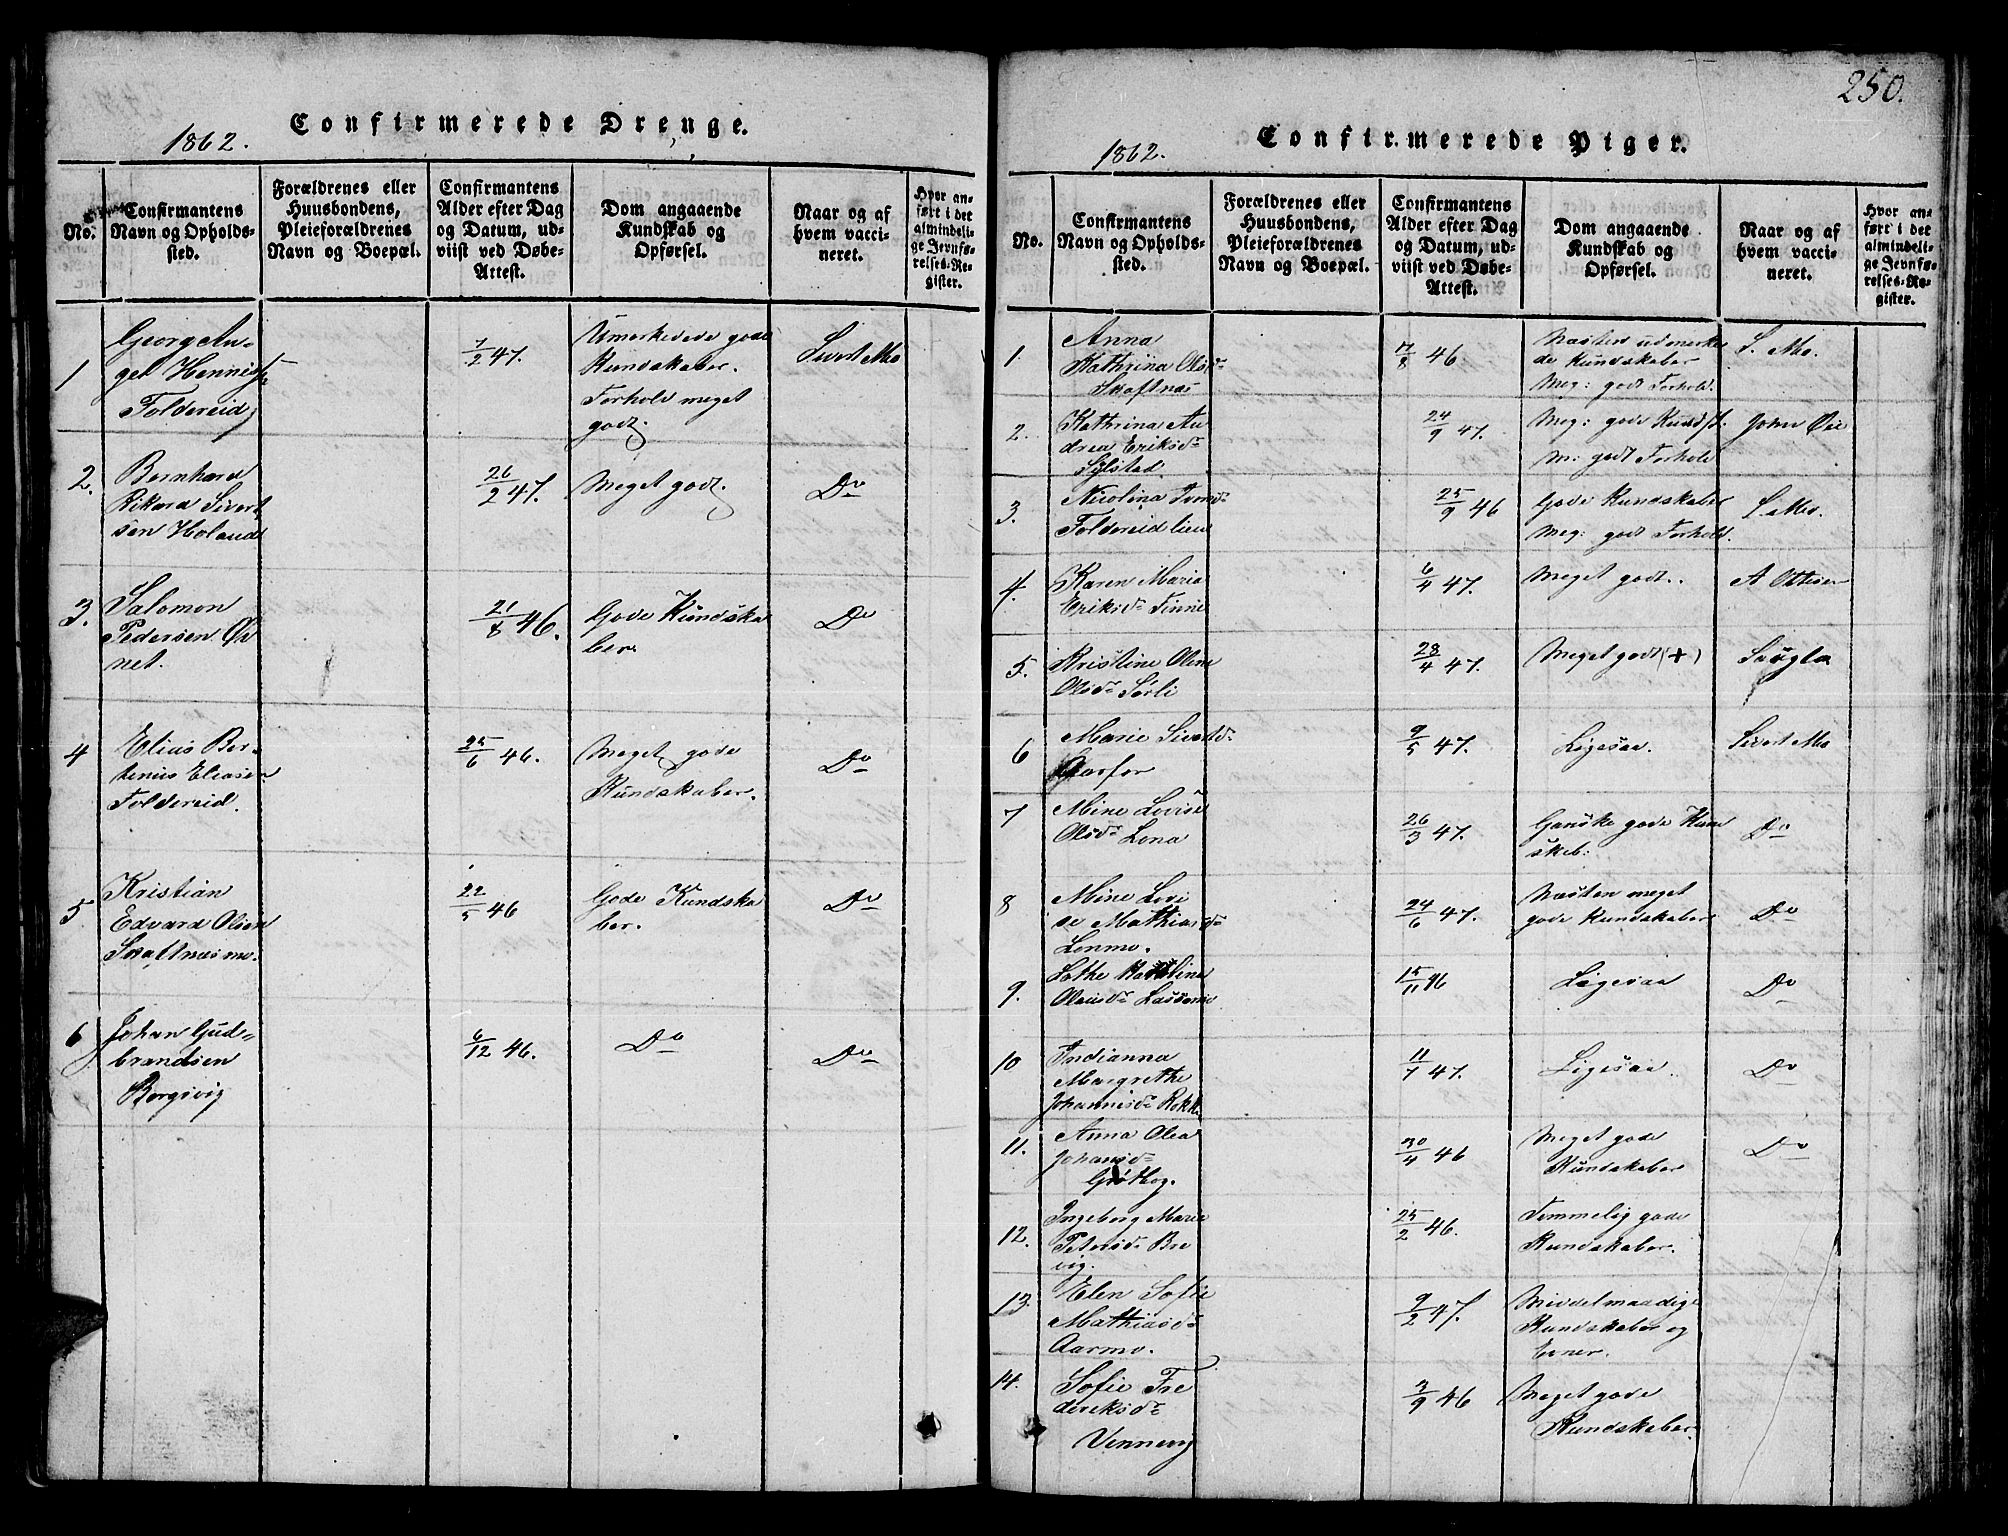 250.
Confirmerede Drenge.
1862.
No.
Confirmantens Navn og Opholdssted.
Forældrenes eller Huusbondens, Pleieforældrenes Navn og Boepæl.
Confirmantens Alder efter Dag og Datum, udviist ved Døbe-Attest.
Dom angaaende Kundskab og Opførsel.
Naar og af hvem vaccineret.
Hvor anført i det almindelige Jevnførelses-Register.
1
Georg An-
get
Foldereid
7/2 47.
Umerkedede gode
Kundskaber.
Forhold meget
godt.
Sivert Mo
2.
Bernhard
Rikard Sivert
sen Holand
26/2 47.
Meget godt.
Do
3.
Salomon
Pedersen Øi
net.
21/8 46.
Gode Kundska
ber.
Do
4
Elias Ber-
henius Eliasen
Foldereid.
25/6 46.
Meget gode
Kundskaber.
Do
5
Kristian
Edvard Olsen
Skaftnesmo.
22/5 46
Gode Kundska
ber.
Do
6
Johan Gud-
brandsen
Borgsvig
6/12 46.
Do
Do
Confirmerede Piger.
1862.
No.
Confirmantens Navn og Opholdssted.
Forældrenes eller Huusbondens, Pleieforældrenes Navn og Boepæl.
Confirmantens Alder efter Dag og Datum, udviist ved Døbe-Attest.
Dom angaaende Kundskab og Opførsel.
Naar og af hvem vaccineret.
Hvor anført i det almindelige Jevnførelses-Register.
1.
Anna
Kathrina Olsd
Skaftnæs
17/8 46
Næsten udmerke
de Kundskaber
Meg: godt Forhold.
S. Mo.
2.
Kathrina An
drea Eriksdr
Sylstad
24/9 47.
Meg: gode Kundsk.
M: godt Forhold
John Øie
3.
Nicolina
Foldereidlien
25/9 46
Gode Kundskaber
Meg: godt Forhold.
S. Mo.
4.
Karen Maria
Eriksdr Finne
6/4 47.
Meget godt.
A Ottesen
5.
Kristine Oline
Olsdr Sørli
28/4 47.
Meget godt (+)
6
Marie Sivertdr
Aarfor
9/5 47.
Ligesaa.
Sivert Mo
7
Mine Lovise
Olsdr Lona
26/3 47.
Ganske gode Kund
skab:
Do
8
Mine Lovi
se Mathiasdr
Lonmo.
24/6 47.
Næsten meget
gode Kundskaber
Do
9.
Olausdr
15/11 46
Ligesaa
Do
10
Indianna
Margrethe
Johannesdr
11/7 47.
Ligesaa.
Do
11.
Anna Olea
Johansdr
Grøtbog.
30/4 46
Meget gode
Kundskaber
Do
12.
Ingeborg Marie
Petersdr Bre
vig.
25/2 46.
Temmelig gode
Kundskaber.
13.
Elen Sofie
Mathiasdr
Aarmo.
9/2 47.
Middelmaadige
Kundskaber og
Evner.
14.
Sofie Fre
deriksdr
3/9 46
Meget gode
Kundskaber.